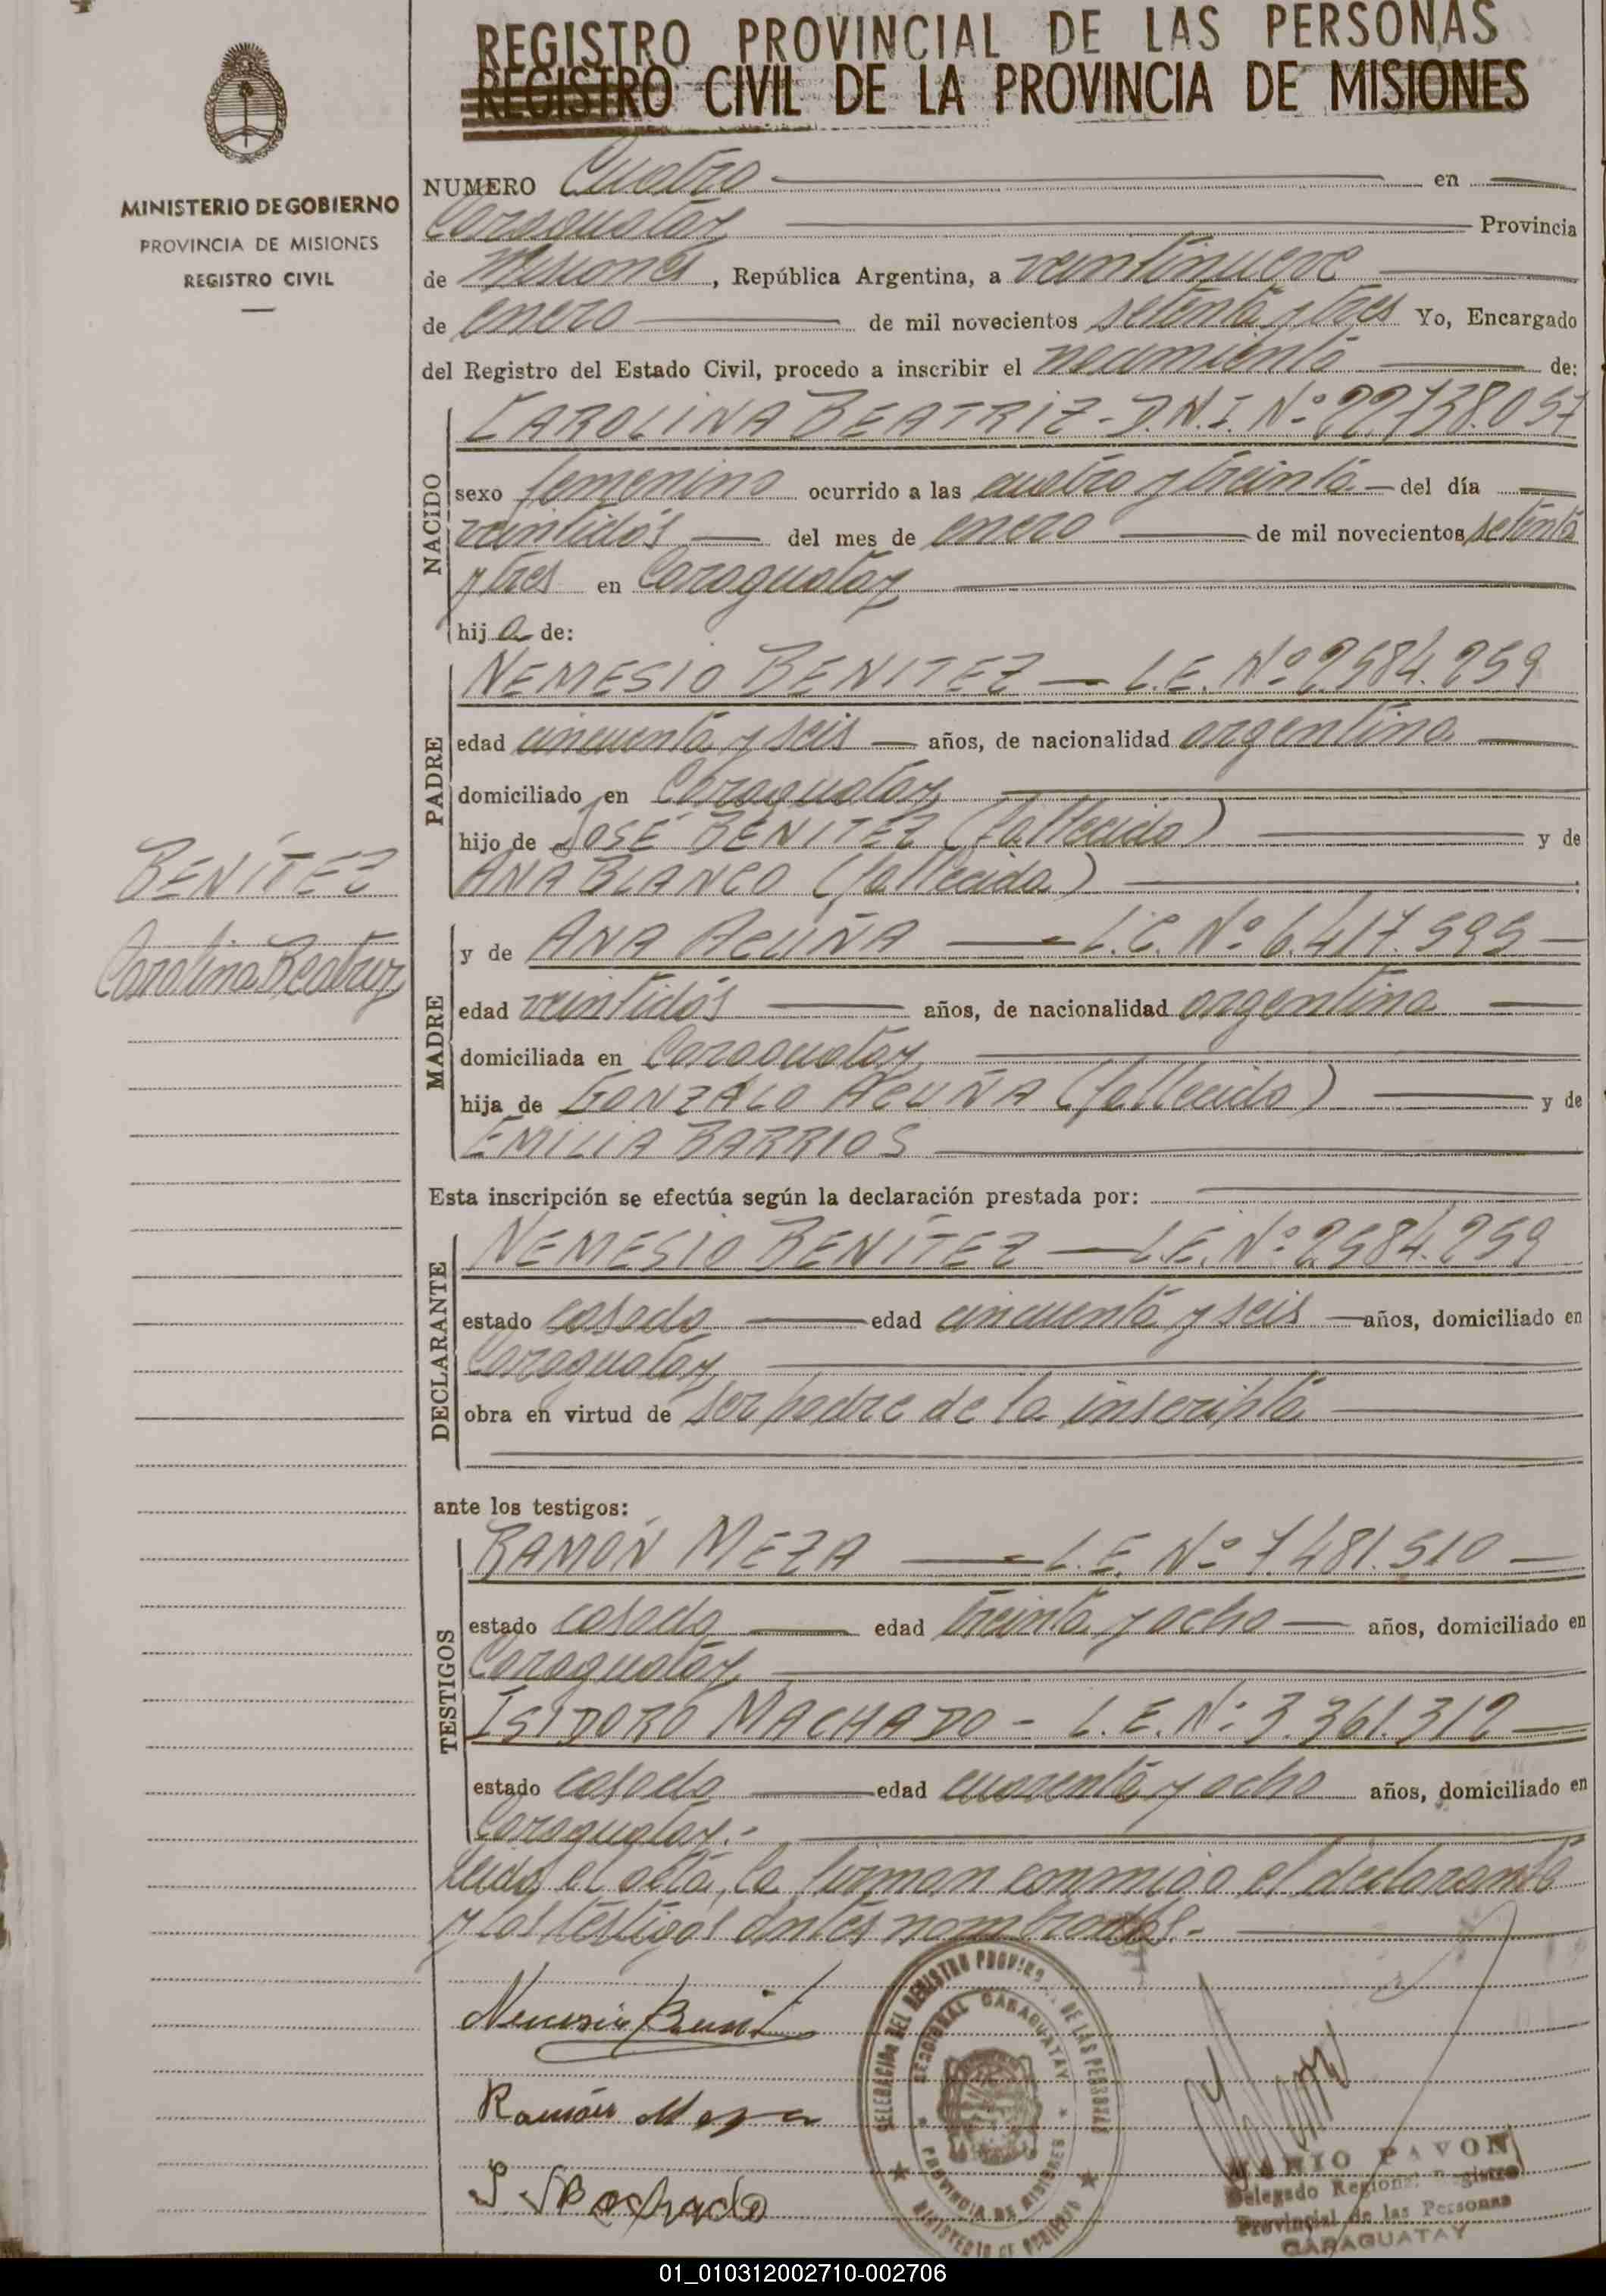 REGISTRO PROVINCIAL DE LAS PERSONAS
REGISTRO CIVIL DE LA PROVINCIA DE MISIONES
MINISTERIO DE GOBIERNO
PROVINCIA DE MISIONES
REGISTRO CIVIL
NUMERO Cuatro en
Caraguatay Provincia
de Misiones, República Argentina, a veintinueve
de enero de mil novecientos setenta y tres Yo, Encargado
del Registro del Estado Civil, procedo a inscribir el nacimiento de:
NACIDO
CAROLINA BEATRIZ - D.N.I. Nº 22.738.057
sexo femenino ocurrido a las cuatro y treinta - del día
veintidós del mes de enero de mil novecientos setenta
y tres en Caraguatay
hija de:
PADRE
NEMESIO BENITEZ — L.E. Nº 2584.259
edad cincuenta y seis — años, de nacionalidad argentina
domiciliado en Caraguatay
hijo de JOSÉ BENITEZ (fallecido) y de
ANA BLANCO (fallecida)
BENÍTEZ
Carolina Beatriz
MADRE
y de ANA ACUÑA — L.C. Nº 6.417.595
edad veintidós años, de nacionalidad argentina
domiciliada en Caraguatay
hija de GONZALO ACUÑA (fallecido) y de
EMILIA BARRIOS
Esta inscripción se efectúa según la declaración prestada por:
DECLARANTE
NEMESIO BENÍTEZ — L.E. Nº 2584.259
estado casado edad cincuenta y seis — años, domiciliado en
Caraguatay
obra en virtud de ser padre de la inscripta
ante los testigos:
TESTIGOS
RAMÓN MEZA — L.E. Nº 7.481.510 —
estado casado edad treinta y ocho — años, domiciliado en
Caraguatay
ISIDORO MACHADO - L.E. Nº 3.361.312 —
estado casado edad cuarenta y ocho años, domiciliado en
Caraguatay.-
Leida el acta, la firman conmigo el declarante
y los testigos antes nombrados.-
Ramón Meza
DELEGACION DEL REGISTRO PROVINCIAL DE LAS PERSONAS
REGIONAL CARAGUATAY
PROVINCIA DE MISIONES
MINISTERIO DE GOBIERNO
MARIO PAVON
Delegado Regional Registro
Provincial de las Personas
CARAGUATAY
01_010312002710-002706